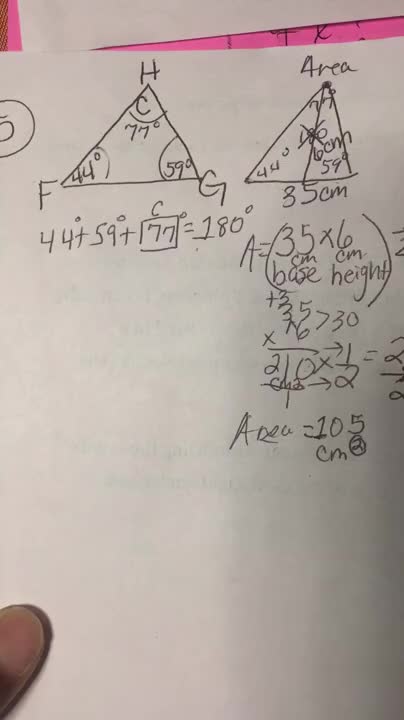 5
H
C
77°
44°
59°
F
G
C
44°+59°+77°=180°
Area
77°
6
cm
44°
59°
35cm
A=(35×6)
cm cm
base height
+3
35>30
×6
210×1=2
cm2→2
2
1
Area=105
cm②